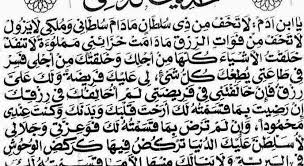 يَا ابن ادم ، لا تَخَف مِن ذِى سُلطَان مَادَامَ سُلطَانِى وَمُلكِى لايَزُول
لا تَخَف مِن فَوَاتِ الرِّزق مَادَامَت خَزَائِنى مَملُوءَة لا تَنفَد
خَلَقتُ الأَشيَاءَ كُلَّهَا مِن اجلِكَ وَخَلَقتُكَ مِن اجلِى فَسِر
فِى طَاعَتِى يُطِعكَ كُلُّ شَئ ، لِى عَلَيكَ فَرِيضَة وَلَكَ عَلَىَّ
رِزق فَإِن خَالَفتَنِى فِى فَرِيضَتِى لَم أُخَالِفكَ فِى رِزقِكَ
إِن رَضِيتَ بِمَا قَسَمتُهُ لَكَ أَرَحتُ قَلبَكَ وَبَدَنَكَ وَكُنتَ عِندِى
مَحمُوداً ، وَإِن لَم تَرضَ بِمَا قَسَمتُهُ لَكَ فَوَعِزَّتِى وَجَلالِى
لأُسَلِّطَنَّ عَلَيكَ الدُّنيَا تَركُضُ فِيهَا كَرَكضِ الوُحُوش